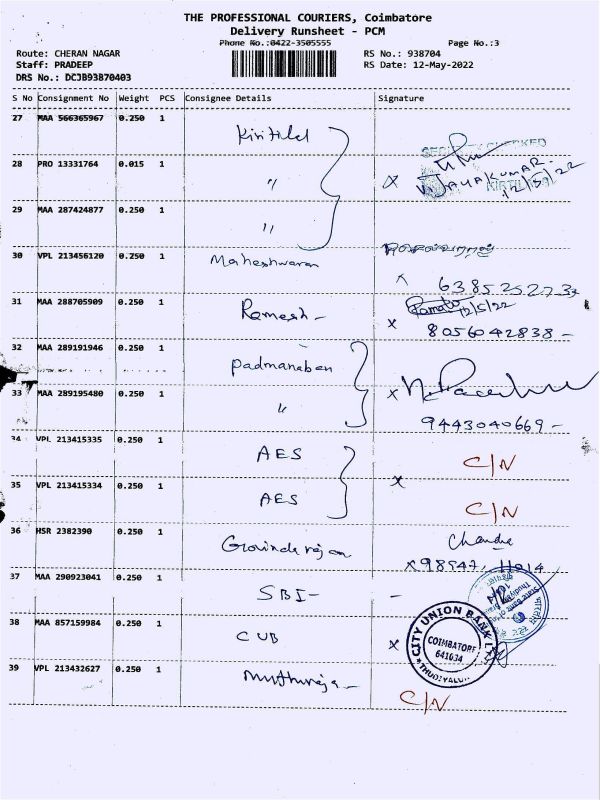 THE PROFESSIONAL COURIERS, Coimbatore
Delivery Runsheet - PCM
Phone No.:0422-3505555 Page No.:3
Route: CHERAN NAGAR RS No.: 938704
Staff: PRADEEP RS Date: 12-May-2022
DRS No.: DCJB93870403
S No Consignment No Weight PCS Consignee Details Signature
27 MAA 566365967 0.250 1 Kiritilal
SECURITY CHECKED
28 PRO 13331764 0.015 1 " x VIJAYAKUMAR.
KIRTILAL 12/5/22
29 MAA 287424877 0.250 1 "
30 VPL 213456120 0.250 1 Maheshwaran
x
31 MAA 288705909 0.250 1 Ramesh - 12/5/22
x 8056042838 -
32 MAA 289191946 0.250 1 Padmanaban
33 MAA 289195480 0.250 1 " x
9443040669 -
34 VPL 213415335 0.250 1 AES C/N
35 VPL 213415334 0.250 1 AES x C/N
36 HSR 2382390 0.250 1 Govindarajan Chandra
x 98547,
37 MAA 290923041 0.250 1 SBI - -
38 MAA 857159984 0.250 1 CUB x CITY UNION BANK LTD
COIMBATORE
641034
THUDIYALUR
39 VPL 213432627 0.250 1 Muthuraja - C/N